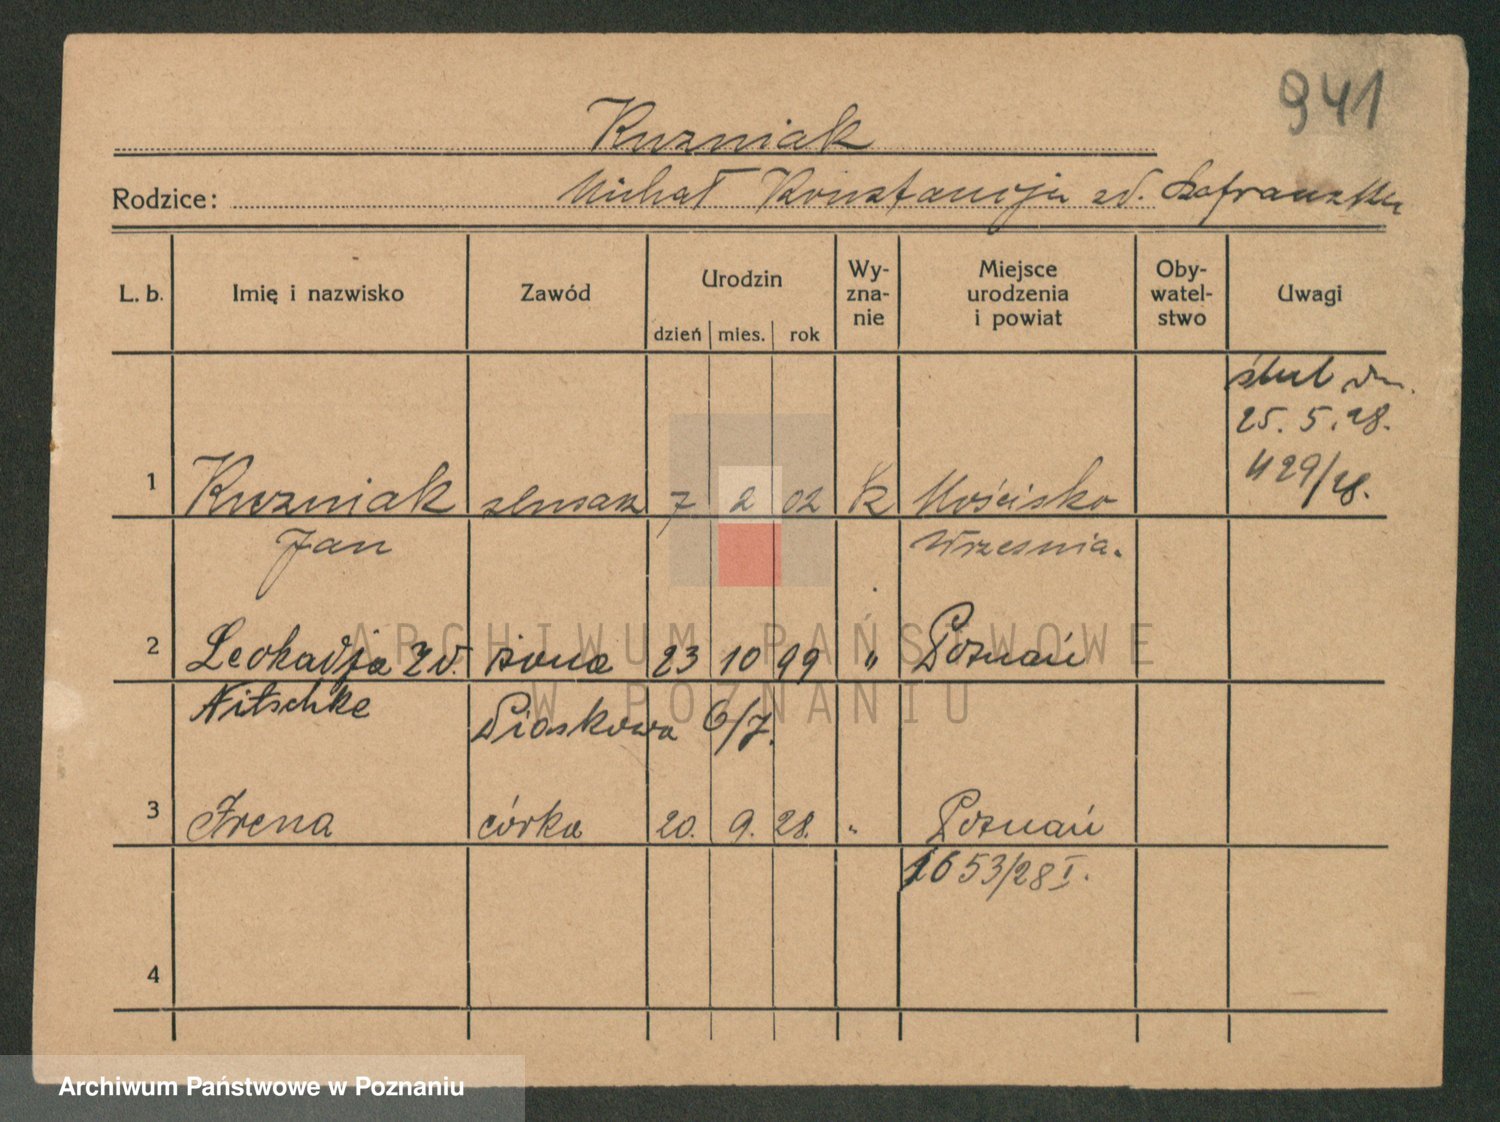 941
Kuzniak
Rodzice: Michał Konstancja zd. Szafranska
L. b.
Imię i nazwisko
Zawód
Urodzin
dzień mies. rok
Wy-
zna-
nie
Miejsce
urodzenia
i powiat
Oby-
watel-
stwo
Uwagi
ślub dn.
25. 5. 28.
429/28.
1 Kuzniak ślusarz 7 2 02 rk Mościsko
Jan Wrzesnia.
2 Leokadja zd. żona 23 10 99 " Poznań
Nitschke Piaskowa 6/7.
3 Irena córka 20. 9. 28. " Poznań
1653/28 I.
4
ARCHIWUM PAŃSTWOWE
W POZNANIU
Archiwum Państwowe w Poznaniu